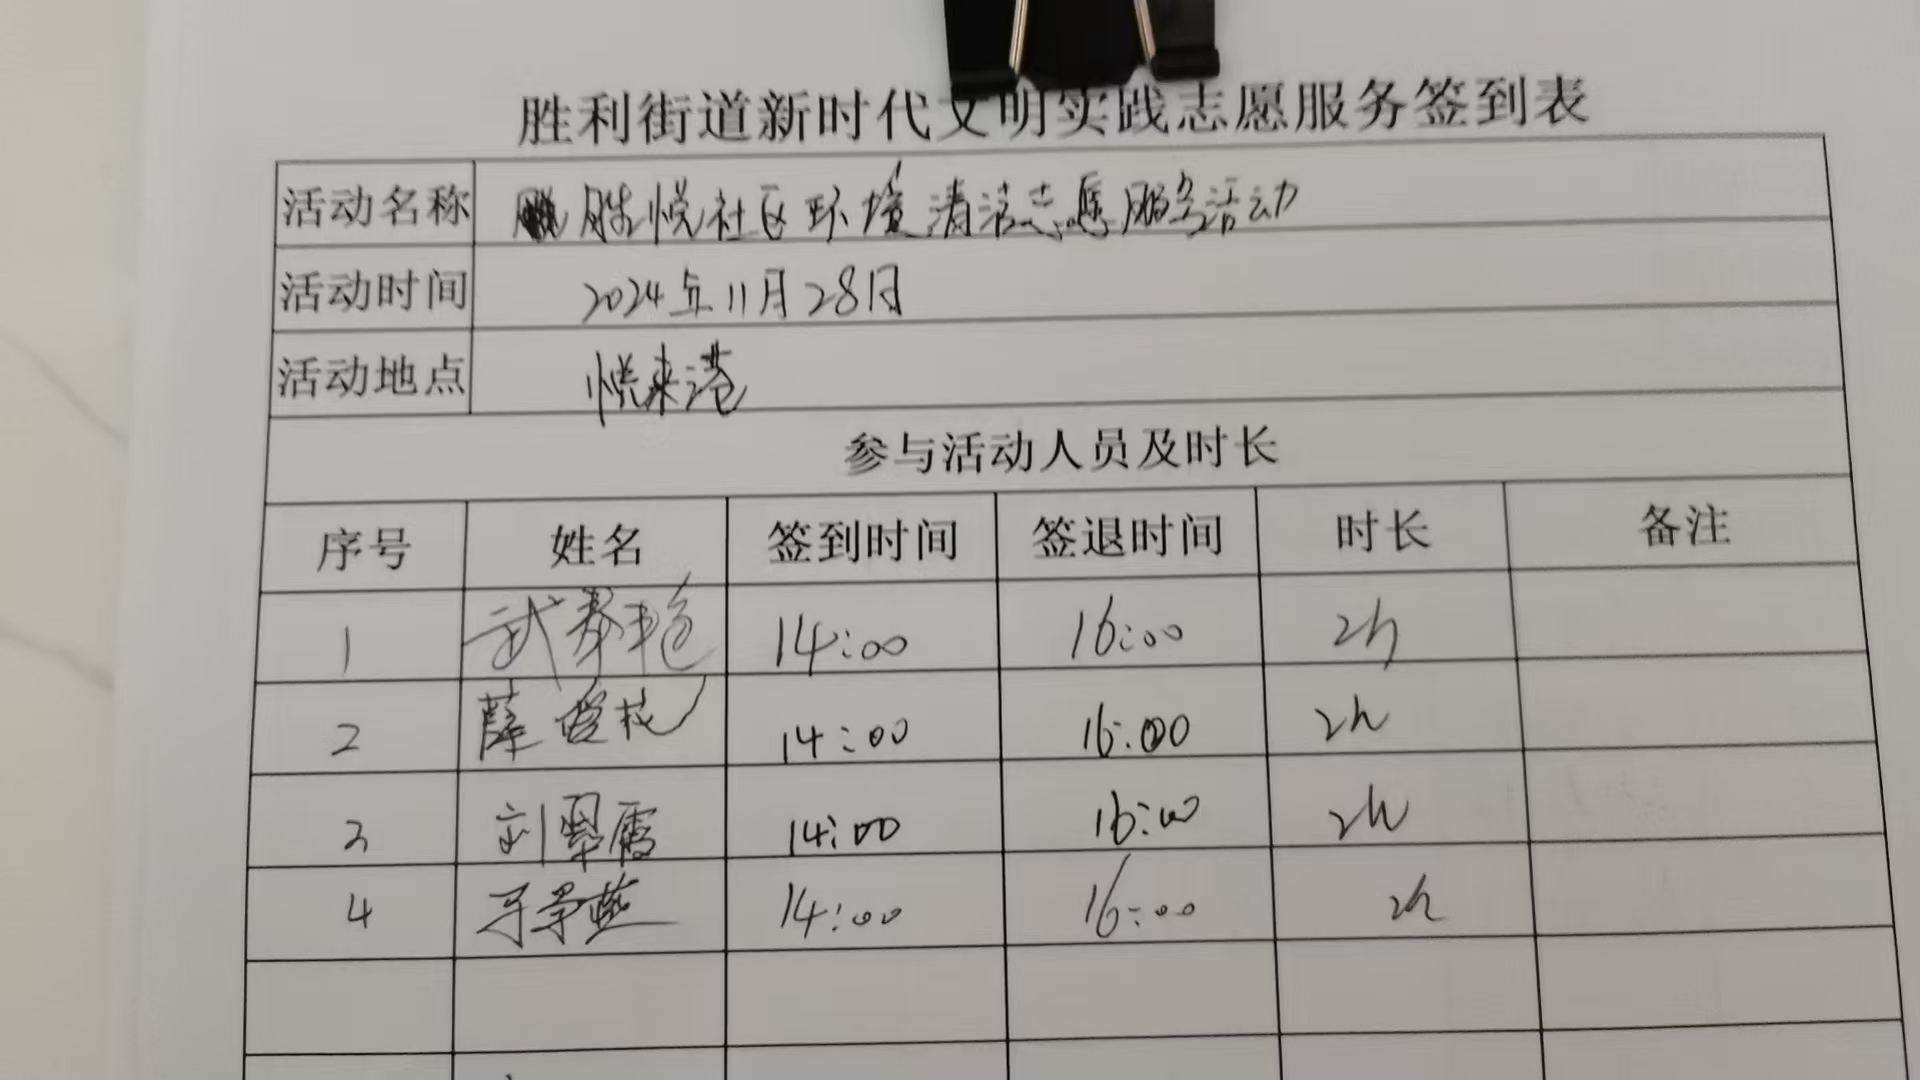 胜利街道新时代文明实践志愿服务签到表
活动名称 胜悦社区环境清洁志愿服务活动
活动时间 2024年11月28日
活动地点 悦来港
参与活动人员及时长
序号 姓名 签到时间 签退时间 时长 备注
1 武 14:00 16:00 2h
2 薛爱花 14:00 16:00 2h
3 刘翠霞 14:00 16:00 2h
4 14:00 16:00 2h